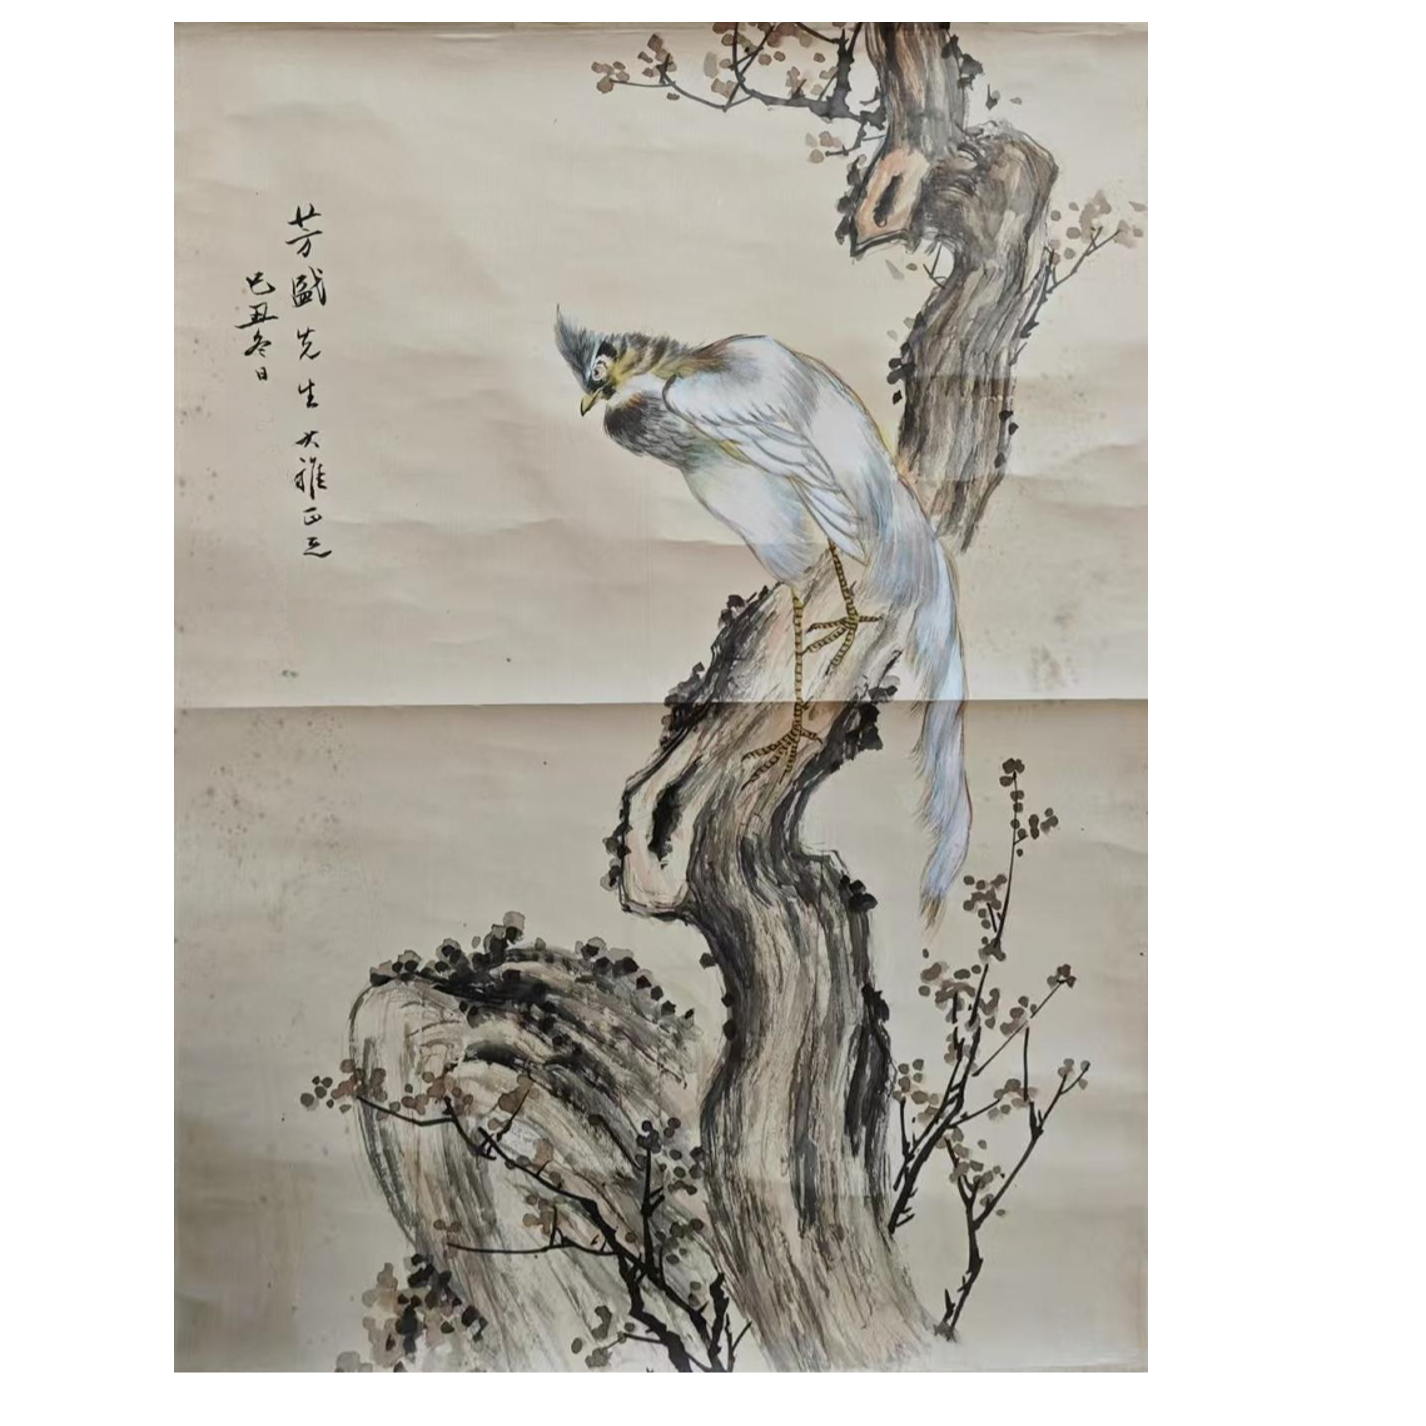 芳盛先生大雅正之
己丑冬日